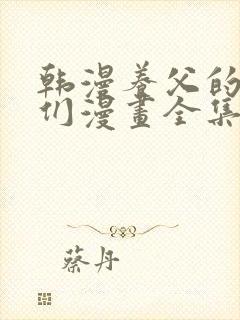 韩漫养父的
们漫畫全集
蔡丹